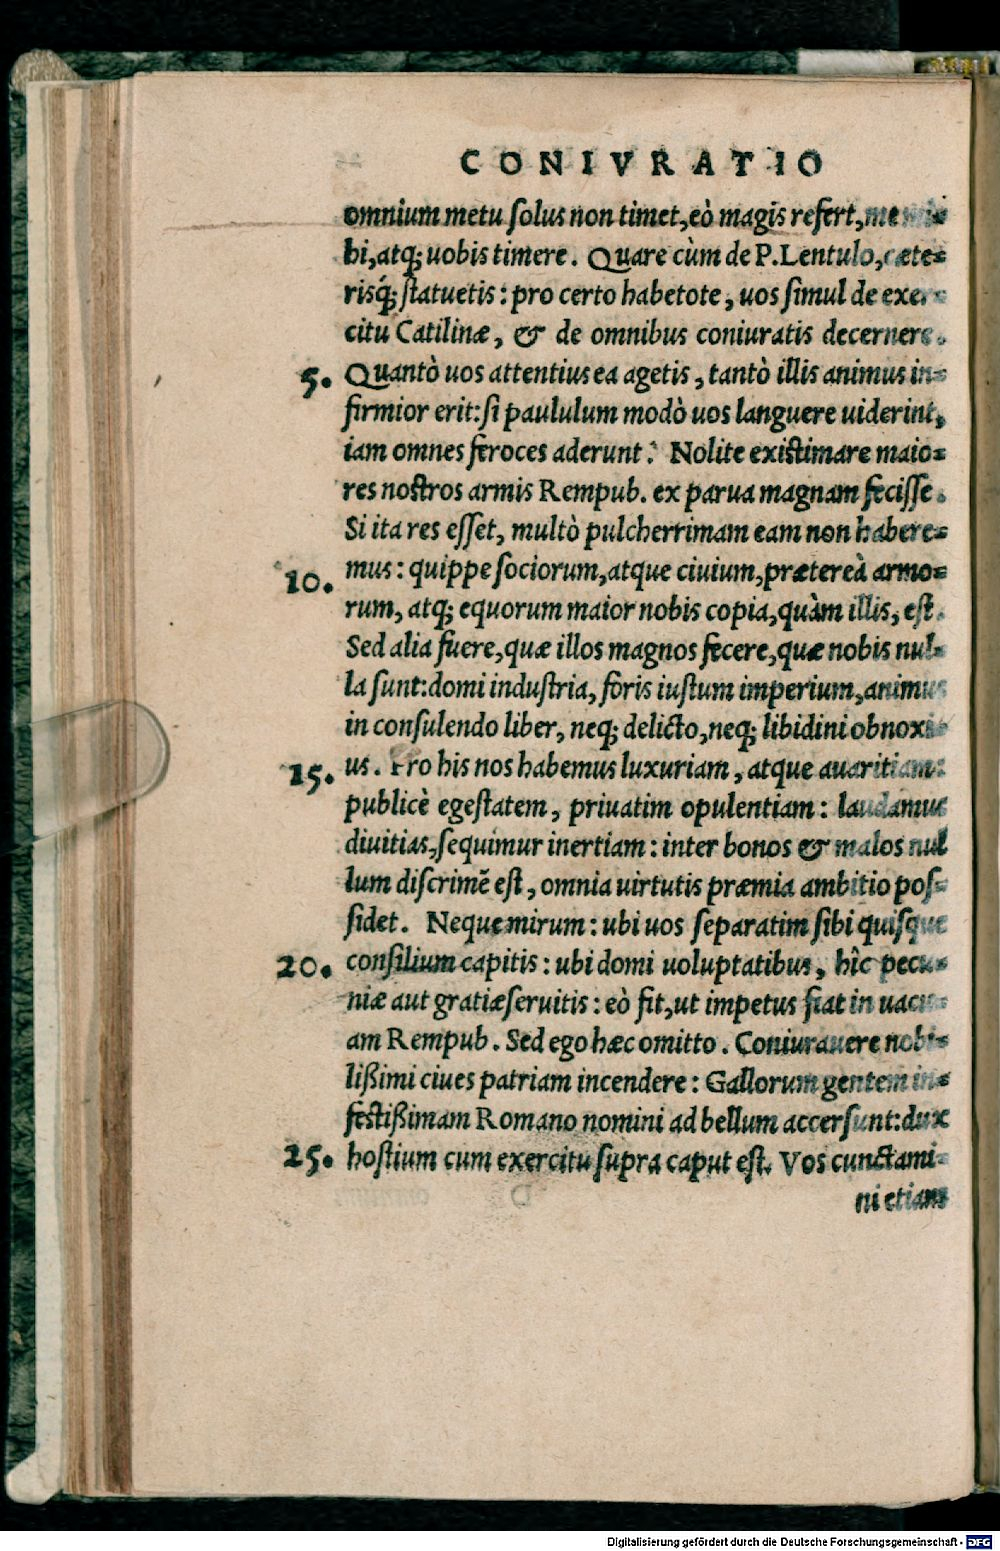 CONIVRATIO
omnium metu solus non timet, eò magis refert, me mi-
hi, atq; uobis timere. Quare cùm de P. Lentulo, cæte-
risq́; statuetis: pro certo habetote, uos simul de exer-
citu Catilinæ, & de omnibus coniuratis decernere.
5. Quantò uos attentius ea agetis, tantò illis animus in-
firmior erit: si paululum modò uos languere uiderint,
iam omnes feroces aderunt. Nolite existimare maio-
res nostros armis Rempub. ex parua magnam fecisse.
Si ita res esset, multò pulcherrimam eam non habere-
10. mus: quippe sociorum, atque ciuium, prætereà armo-
rum, atq; equorum maior nobis copia, quàm illis, est.
Sed alia fuere, quæ illos magnos fecere, quæ nobis nul-
la sunt: domi industria, foris iustum imperium, animus
in consulendo liber, neq; delicto, neq; libidini obnoxi-
15. us. Pro his nos habemus luxuriam, atque auaritiam:
publicè egestatem, priuatim opulentiam: laudamus
diuitias, sequimur inertiam: inter bonos & malos nul
lum discrimē est, omnia uirtutis præmia ambitio pos-
sidet. Neque mirum: ubi uos separatim sibi quisque
20. consilium capitis: ubi domi uoluptatibus, hîc pecu-
niæ aut gratiæ seruitis: eò fit, ut impetus fiat in uacu-
am Rempub. Sed ego hæc omitto. Coniurauere nobi-
lißimi ciues patriam incendere: Gallorum gentem in-
festißimam Romano nomini ad bellum accersunt: dux
25. hostium cum exercitu supra caput est. Vos cunctami-
ni etiam
Digitalisierung gefördert durch die Deutsche Forschungsgemeinschaft - DFG